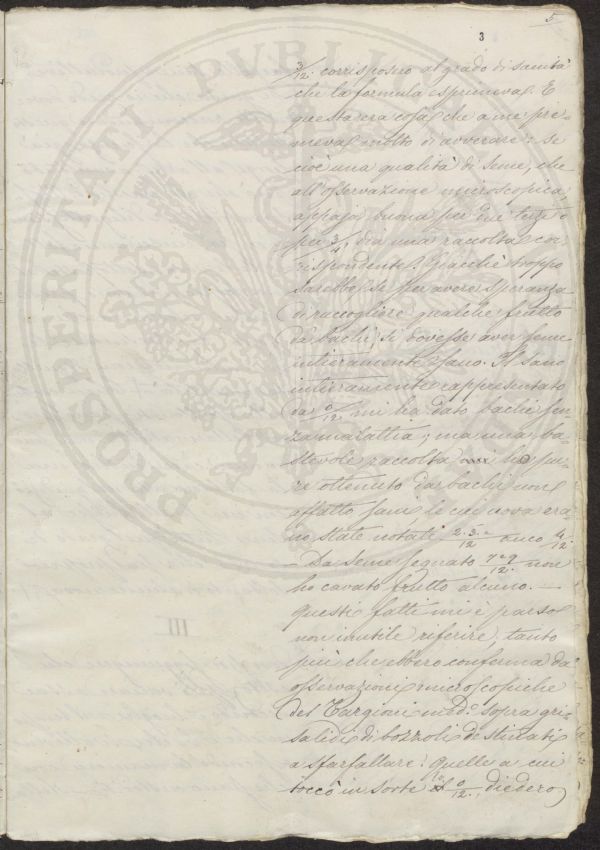 5
3
3/12. corrisposero al grado di sanità
che la formula esprimeva. E
questa era cosa che a me pre-
meva molto di avverare: se
cioè una qualità di seme, che
all'osservazione microscopica,
appaja buona per due terzi o
per 3/4, dia una raccolta cor-
rispondente. Giacchè troppo
sarebbe, se per avere speranza
di raccogliere qualche frutto
da bachi, si dovesse aver seme
intieramente sano. Il sano
intieramente rappresentato
da 0/12. mi ha dato bachi sen-
za malattia, ma una ba-
stevole raccolta ho pu-
re ottenuto da bachi non
affatto sani le cui uova era-
no state notate 2. 3. /12 anco 4/12.
- Da seme segnato 7 e 9/12. non
ho cavato frutto alcuno. —
Questi fatti mi è parso
non inutile riferire, tanto
più che ebbero conferma da
osservazioni microscopiche
del Targioni med.º sopra gri-
salidi di bozzoli destinati
a sfarfallare: quelle a cui
toccò in sorte lo 0/12., diedero
III.
PROSPERITATI PVBLIC